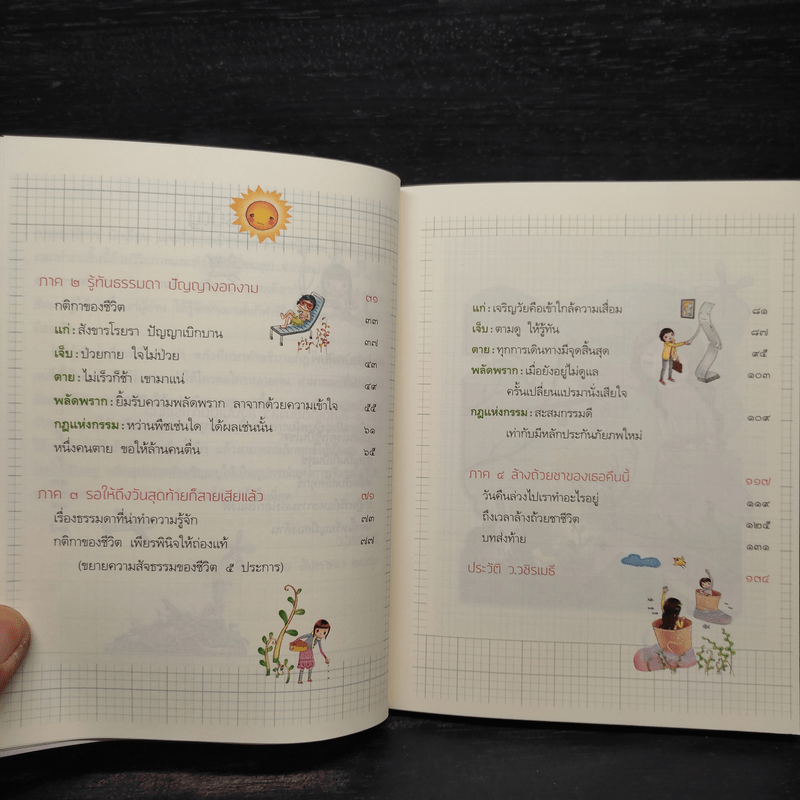 ภาค ๒ รู้ทันธรรมดา ปัญญางอกงาม ๓๑
กติกาของชีวิต ๓๓
แก่ : สังขารโรยรา ปัญญาเบิกบาน ๓๗
เจ็บ : ป่วยกาย ใจไม่ป่วย ๔๓
ตาย : ไม่เร็วก็ช้า เขามาแน่ ๔๙
พลัดพราก : ยิ้มรับความพลัดพราก ลาจากด้วยความเข้าใจ ๕๕
กฎแห่งกรรม : หว่านพืชเช่นใด ได้ผลเช่นนั้น ๖๑
หนึ่งคนตาย ขอให้ล้านคนตื่น ๖๕
ภาค ๓ รอให้ถึงวันสุดท้ายก็สายเสียแล้ว ๗๑
เรื่องธรรมดาที่น่าทำความรู้จัก ๗๓
กติกาของชีวิต เพียรพินิจให้ถ่องแท้ ๗๗
(ขยายความสัจธรรมของชีวิต ๕ ประการ)
แก่ : เจริญวัยคือเข้าใกล้ความเสื่อม ๘๑
เจ็บ : ตามดู ให้รู้ทัน ๘๗
ตาย : ทุกการเดินทางมีจุดสิ้นสุด ๙๕
พลัดพราก : เมื่อยังอยู่ไม่ดูแล ๑๐๓
ครั้นเปลี่ยนแปรมานั่งเสียใจ
กฎแห่งกรรม : สะสมกรรมดี ๑๐๙
เท่ากับมีหลักประกันภัยภพใหม่
ภาค ๔ ล้างถ้วยชาของเธอคืนนี้ ๑๑๗
วันคืนล่วงไปเราทำอะไรอยู่ ๑๑๙
ถึงเวลาล้างถ้วยชาชีวิต ๑๒๕
บทส่งท้าย ๑๓๑
ประวัติ ว.วชิรเมธี ๑๓๔